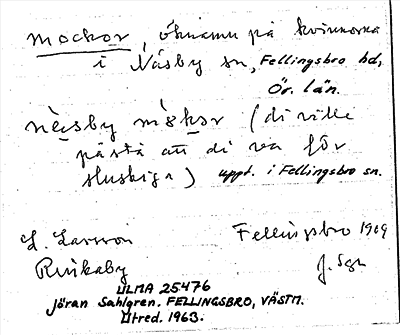 mockor, öknamn på kvinnorna
i Näsby sn, Fellingsbro hd,
Ör. län.
näsby mòkor (di ville
påstå att di va för
sluskiga) uppt. i Fellingsbro sn.
L. Larsson Fellingsbro 1909
Rinkaby J. Sgn
ULMA 25476
Jöran Sahlgren. FELLINGSBRO, VÄSTM.
Utred. 1963.